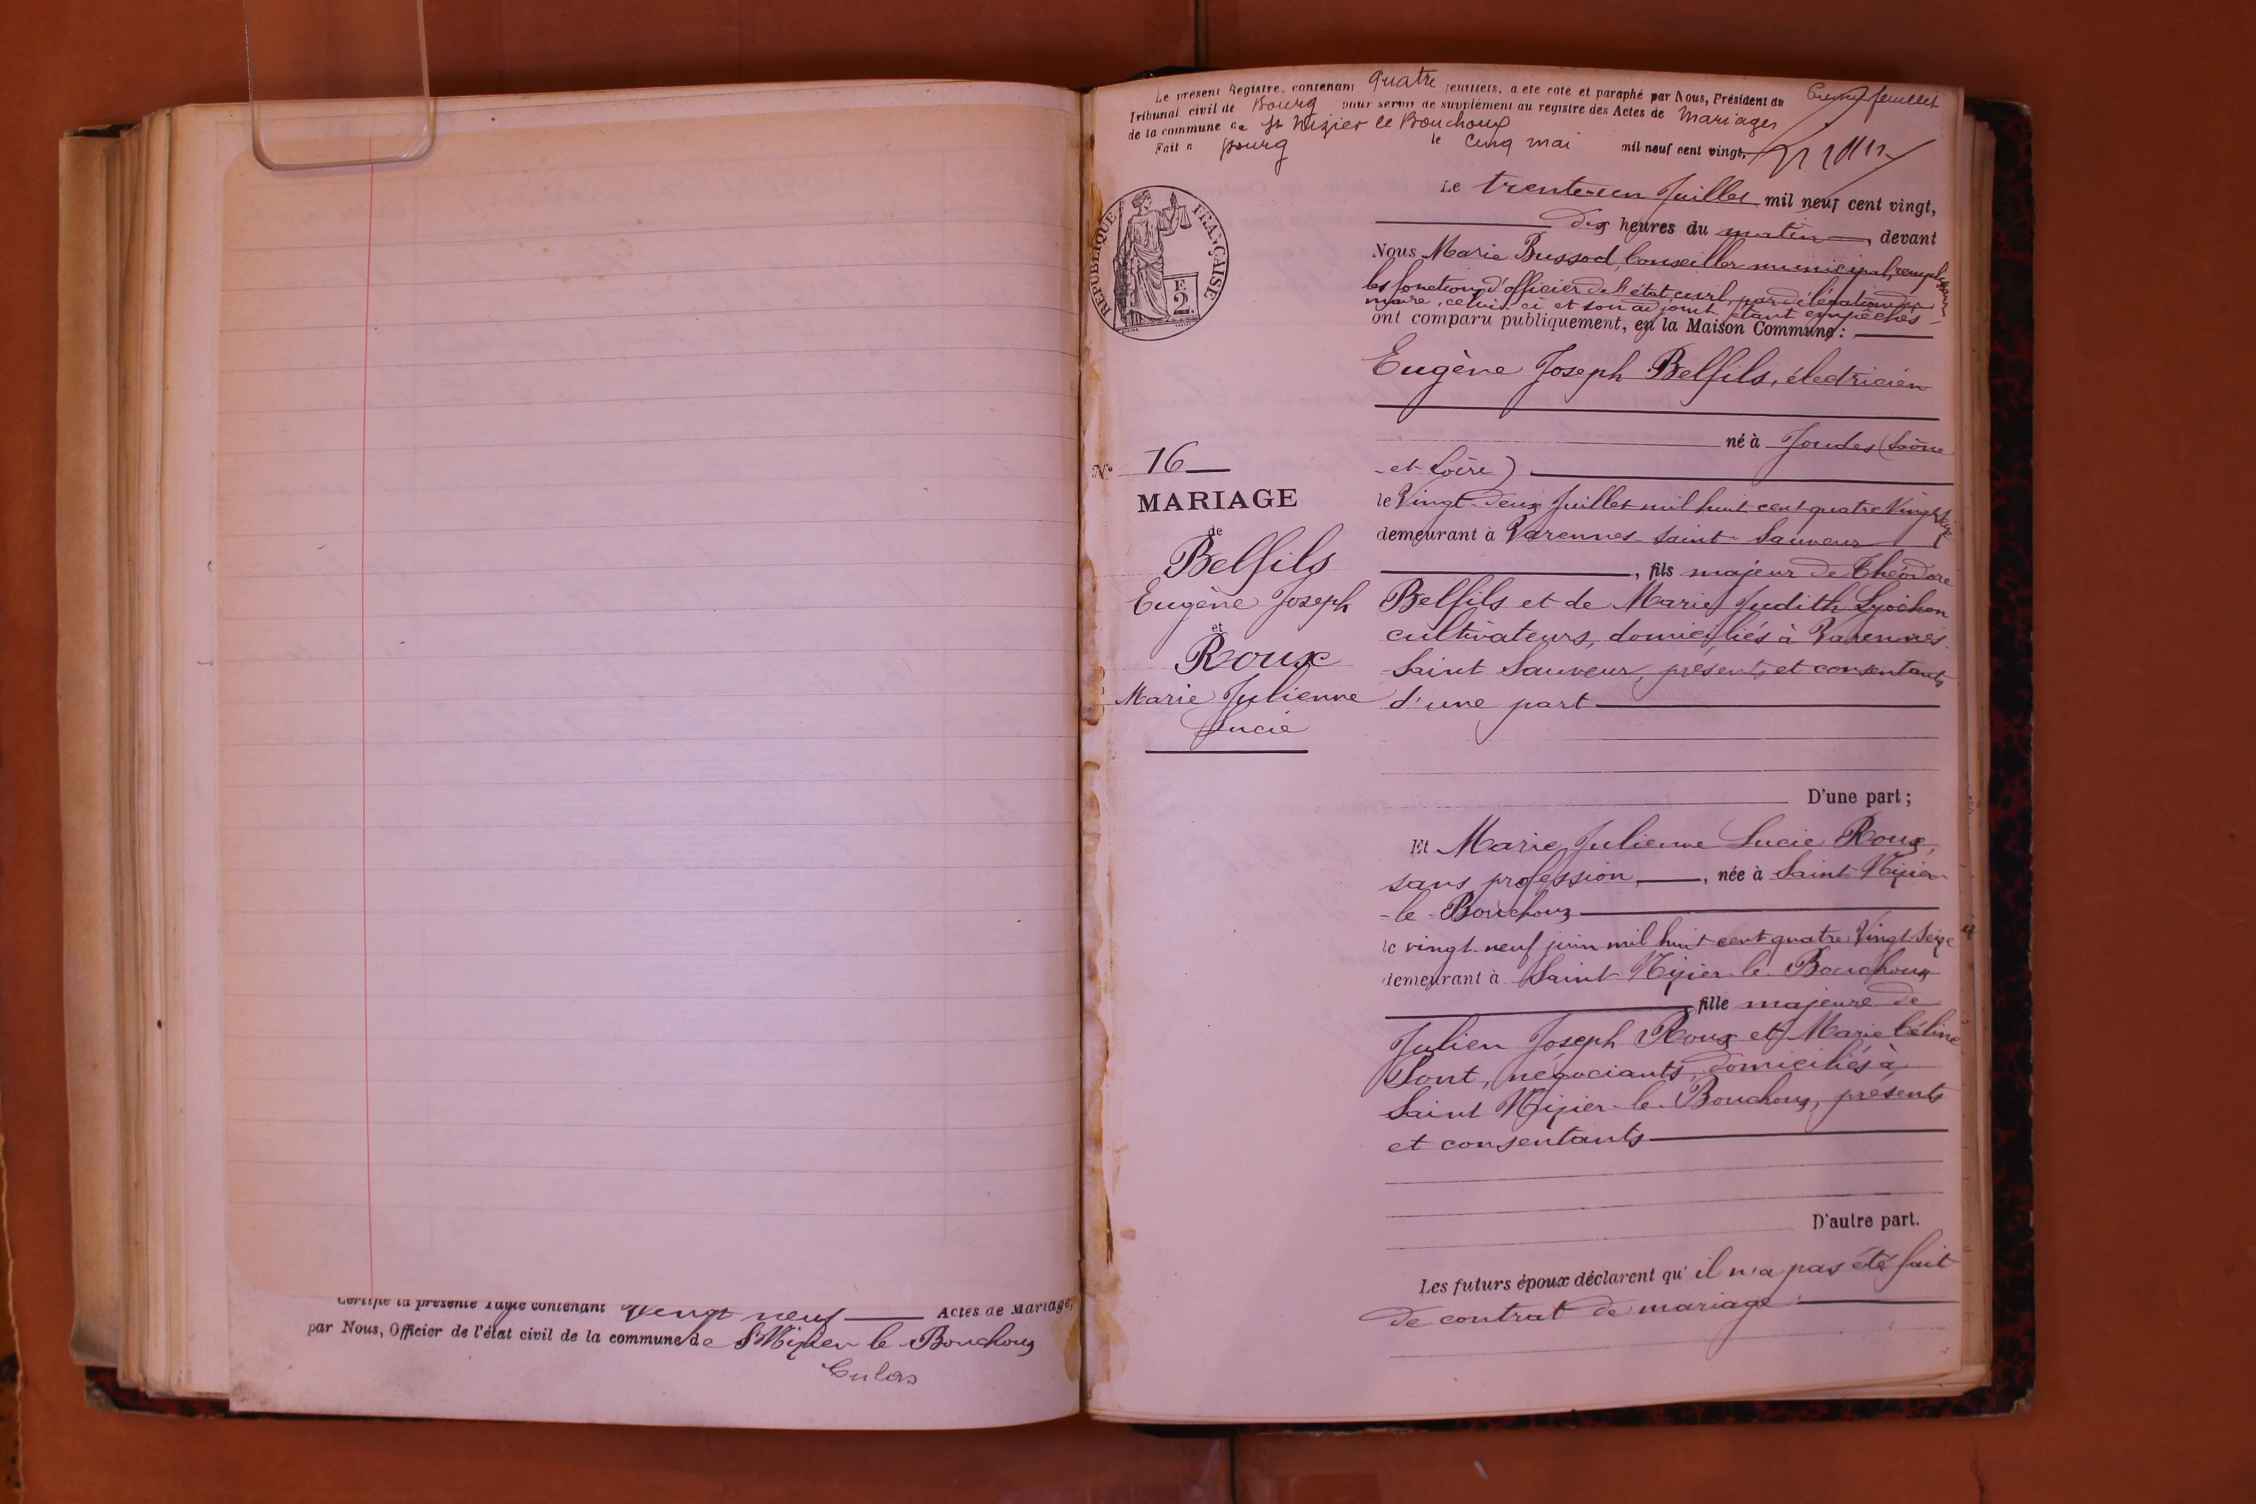 Certifié la présente Table contenant Vingt neuf Actes de Mariage,
par Nous, Officier de l'état civil de la commune de St Nizier le Bouchoux
Le présent Registre, contenant quatre feuillets, a été coté et paraphé par Nous, Président du
Tribunal civil de Bourg pour servir de supplément au registre des Actes de Mariages
de la commune de St Nizier le Bouchoux
Fait à Bourg le cinq mai mil neuf cent vingt,
feuillet
RÉPUBLIQUE FRANÇAISE
2
Nº 16
MARIAGE
de
Belfils
Eugène Joseph
et
Roux
Marie Julienne
Lucie
Le trente-un Juillet mil neuf cent vingt,
dix heures du matin, devant
Nous Marie Bussod, Conseiller municipal,
les fonctions d'officier de l'état civil, par délégation du
maire, celui-ci et son adjoint étant empêchés
ont comparu publiquement, en la Maison Commune :
Eugène Joseph Belfils, électricien
né à Joudes (Saône
-et-Loire)
le Vingt-deux Juillet mil huit cent quatre Vingt
demeurant à Varennes Saint-Sauveur
, fils majeur de Théodore
Belfils et de Marie Judith Lyochon
cultivateurs, domiciliés à Varennes
Saint Sauveur, présents et consentants
d'une part
D'une part ;
Et Marie Julienne Lucie Roux,
sans profession, née à Saint-Nizier
-le-Bouchoux
le vingt-neuf juin mil huit cent quatre Vingt-Seize
demeurant à Saint-Nizier-le-Bouchoux
fille majeure de
Julien Joseph Roux et Marie Céline
Pont, négociants, domiciliés à
Saint Nizier-le-Bouchoux, présents
et consentants
D'autre part.
Les futurs époux déclarent qu'il n'a pas été fait
de contrat de mariage